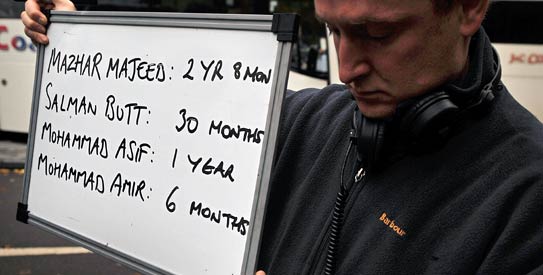 MAZHAR MAJEED: 2 YR 8 MON
SALMAN BUTT: 30 MONTHS
MOHAMMAD ASIF: 1 YEAR
MOHAMMAD AMIR: 6 MONTHS
Barbour